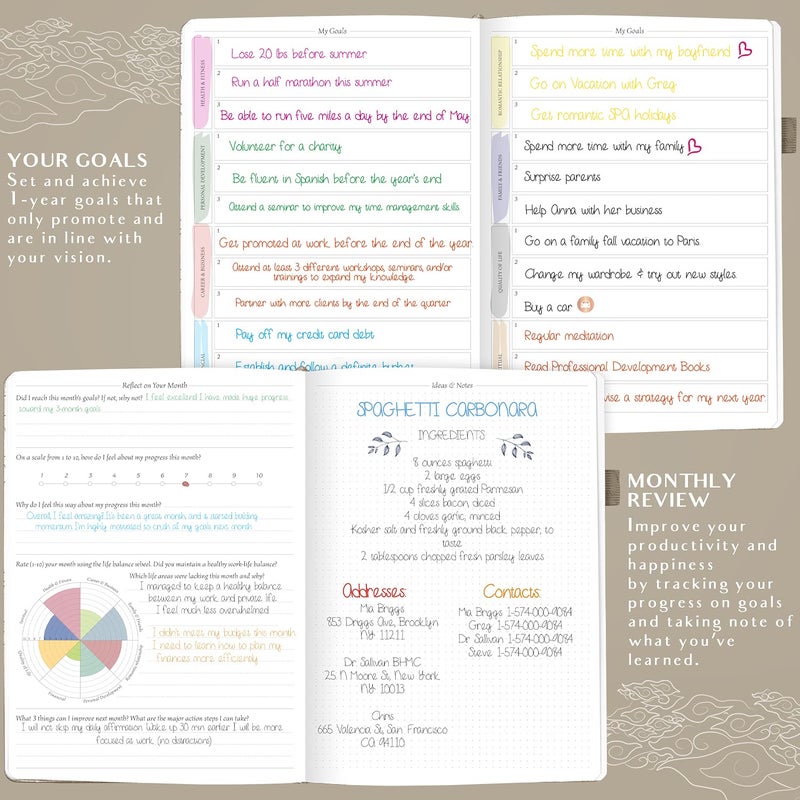 YOUR GOALS
Set and achieve
1-year goals that
only promote and
are in line with
your vision.
My Goals
HEALTH & FITNESS
1 Lose 20 lbs before summer
2 Run a half marathon this summer
3 Be able to run five miles a day by the end of May
PERSONAL DEVELOPMENT
1 Volunteer for a charity
2 Be fluent in Spanish before the year's end
3 Attend a seminar to improve my time management skills
CAREER & BUSINESS
1 Get promoted at work before the end of the year.
2 Attend at least 3 different workshops, seminars, and/or
trainings to expand my knowledge
3 Partner with more clients by the end of the quarter
1 Pay off my credit card debt
2 Establish and follow a definite budget
My Goals
ROMANTIC RELATIONSHIP
1 Spend more time with my boyfriend
2 Go on Vacation with Greg
3 Get romantic SPA holidays
FAMILY & FRIENDS
1 Spend more time with my family
2 Surprise parents
3 Help Anna with her business
QUALITY OF LIFE
1 Go on a family fall vacation to Paris
2 Change my wardrobe & try out new styles.
3 Buy a car
1 Regular meditation
2 Read Professional Development Books
a strategy for my next year.
Reflect on Your Month
Did I reach this month's goals? If not, why not? I feel excellent I have made huge progress
toward my 3-month goals
On a scale from 1 to 10, how do I feel about my progress this month?
1 2 3 4 5 6 7 8 9 10
Why do I feel this way about my progress this month?
Overall, I feel amazing! It's been a great month, and is started building
momentum. I'm highly motivated to crush all my goals next month
Rate (1-10) your month using the life balance wheel. Did you maintain a healthy work-life balance?
Health & Fitness
Career & Business
Family & Friends
Romantic Relationship
Personal Development
Financial
Quality of Life
Spiritual
Which life areas were lacking this month and why?
I managed to keep a healthy balance
between my work and private life.
I feel much less overwhelmed
I didn't meet my budget this month
I need to learn how to plan my
finances more efficiently
What 3 things can I improve next month? What are the major action steps I can take?
I will not skip my daily affirmation. Wake up 30 min earlier I will be more
focused at work (no distractions)
Ideas & Notes
SPAGHETTI CARBONARA
INGREDIENTS
8 ounces spaghetti
2 large eggs
1/2 cup freshly grated Parmesan
4 slices bacon, diced
4 cloves garlic, minced
Kosher salt and freshly ground black pepper, to
taste
2 tablespoons chopped fresh parsley leaves
Addresses:
Mia Briggs
853 Driggs Ave, Brooklyn
NY 11211
Dr Sallivan BHMC
25 N Moore St, New York
NY 10013
Chris
665 Valencia St, San Francisco
CA 94110
Contacts:
Mia Briggs 1-574-000-9084
Greg 1-574-000-9084
Dr Sallivan 1-574-000-9084
Steve 1-574-000-9084
MONTHLY
REVIEW
Improve your
productivity and
happiness
by tracking your
progress on goals
and taking note of
what you've
learned.